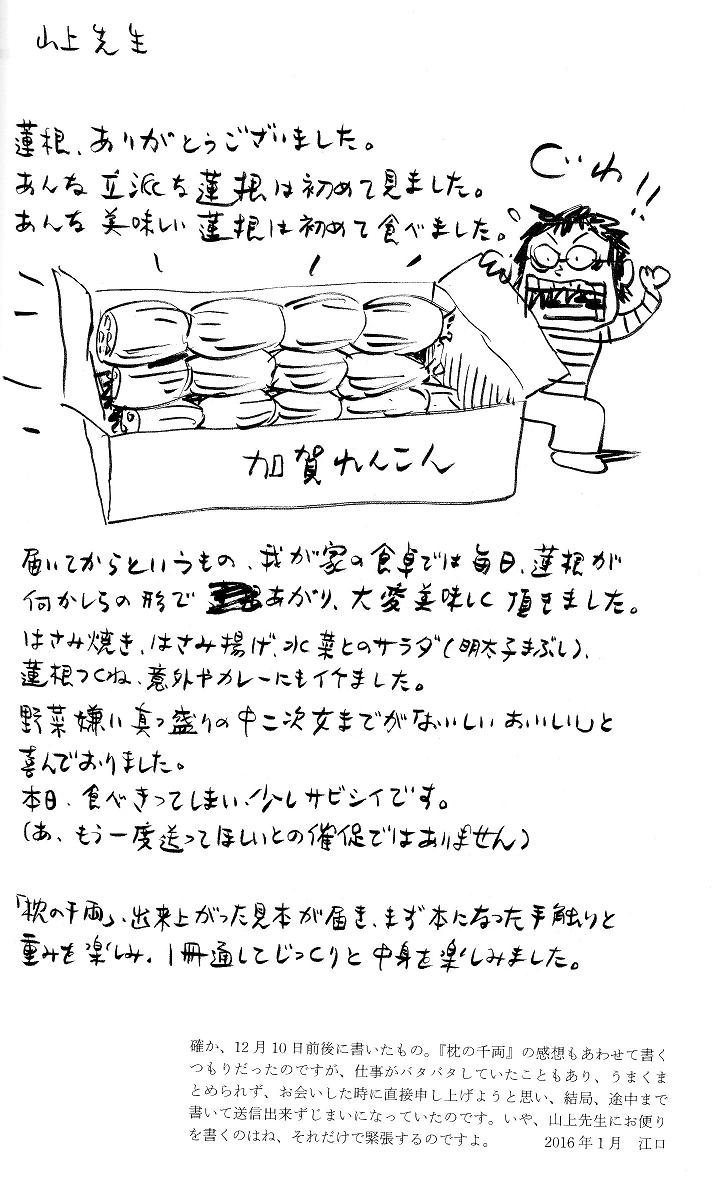 山上先生
蓮根、ありがとうございました。
あんな立派な蓮根は初めて見ました。
あんな美味しい蓮根は初めて食べました。
ぐわ!!
加賀れんこん
届いてからというもの、我が家の食卓では毎日、蓮根が
何かしらの形であがり、大変美味しく頂きました。
はさみ焼き、はさみ揚げ、水菜とのサラダ(明太子まぶし)、
蓮根つくね、意外やカレーにもイケました。
野菜嫌い真っ盛りの中二次女までが「おいしいおいしい」と
喜んでおりました。
本日、食べきってしまい、少しサビシイです。
(あ、もう一度送ってほしいとの催促ではありません)
「枕の千両」、出来上がった見本が届き、まず本になった手触りと
重みを楽しみ、1冊通してじっくりと中身を楽しみました。
確か、12月10日前後に書いたもの。『枕の千両』の感想もあわせて書く
つもりだったのですが、仕事がバタバタしていたこともあり、うまくま
とめられず、お会いした時に直接申し上げようと思い、結局、途中まで
書いて送信出来ずじまいになっていたのです。いや、山上先生にお便り
を書くのはね、それだけで緊張するのですよ。 2016年1月 江口